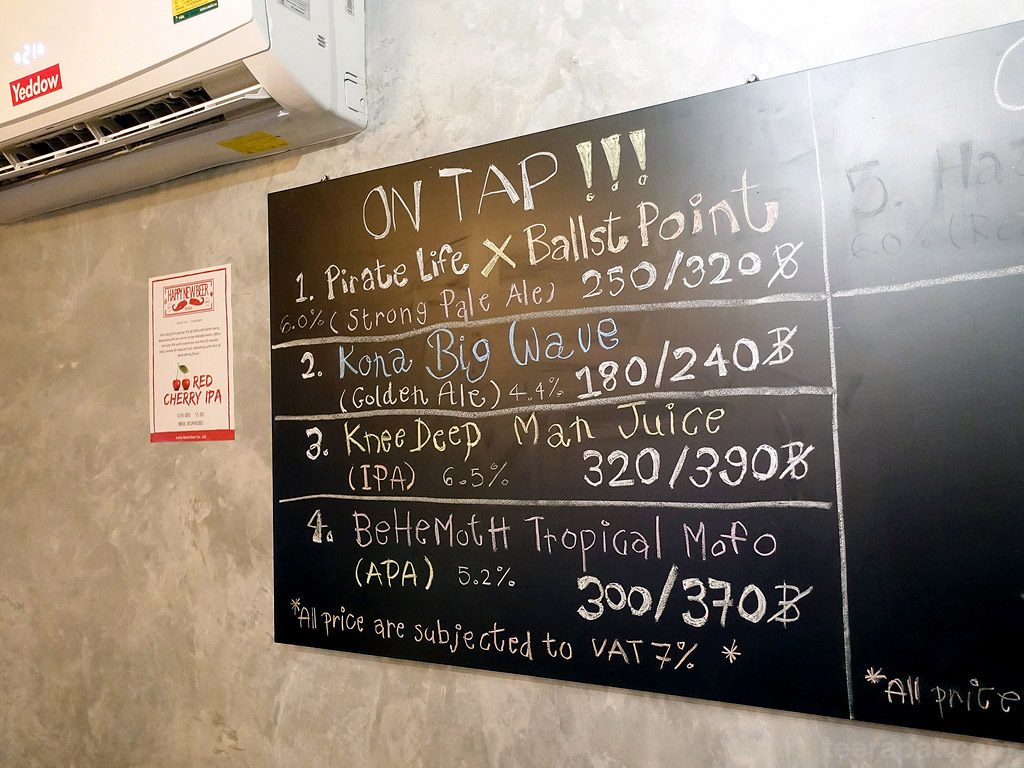 Yeddow
HAPPY NEW BEER
RED
CHERRY IPA
ON TAP !!!
1. Pirate Life X Ballst Point
6.0% (Strong Pale Ale) 250/320฿
2. Kona Big Wave
(Golden Ale) 4.4% 180/240฿
3. Knee Deep Man Juice
(IPA) 6.5% 320/390฿
4. BeHeMotH Tropical Mofo
(APA) 5.2% 300/370฿
*All price are subjected to VAT 7% *
5. Haz
*All price